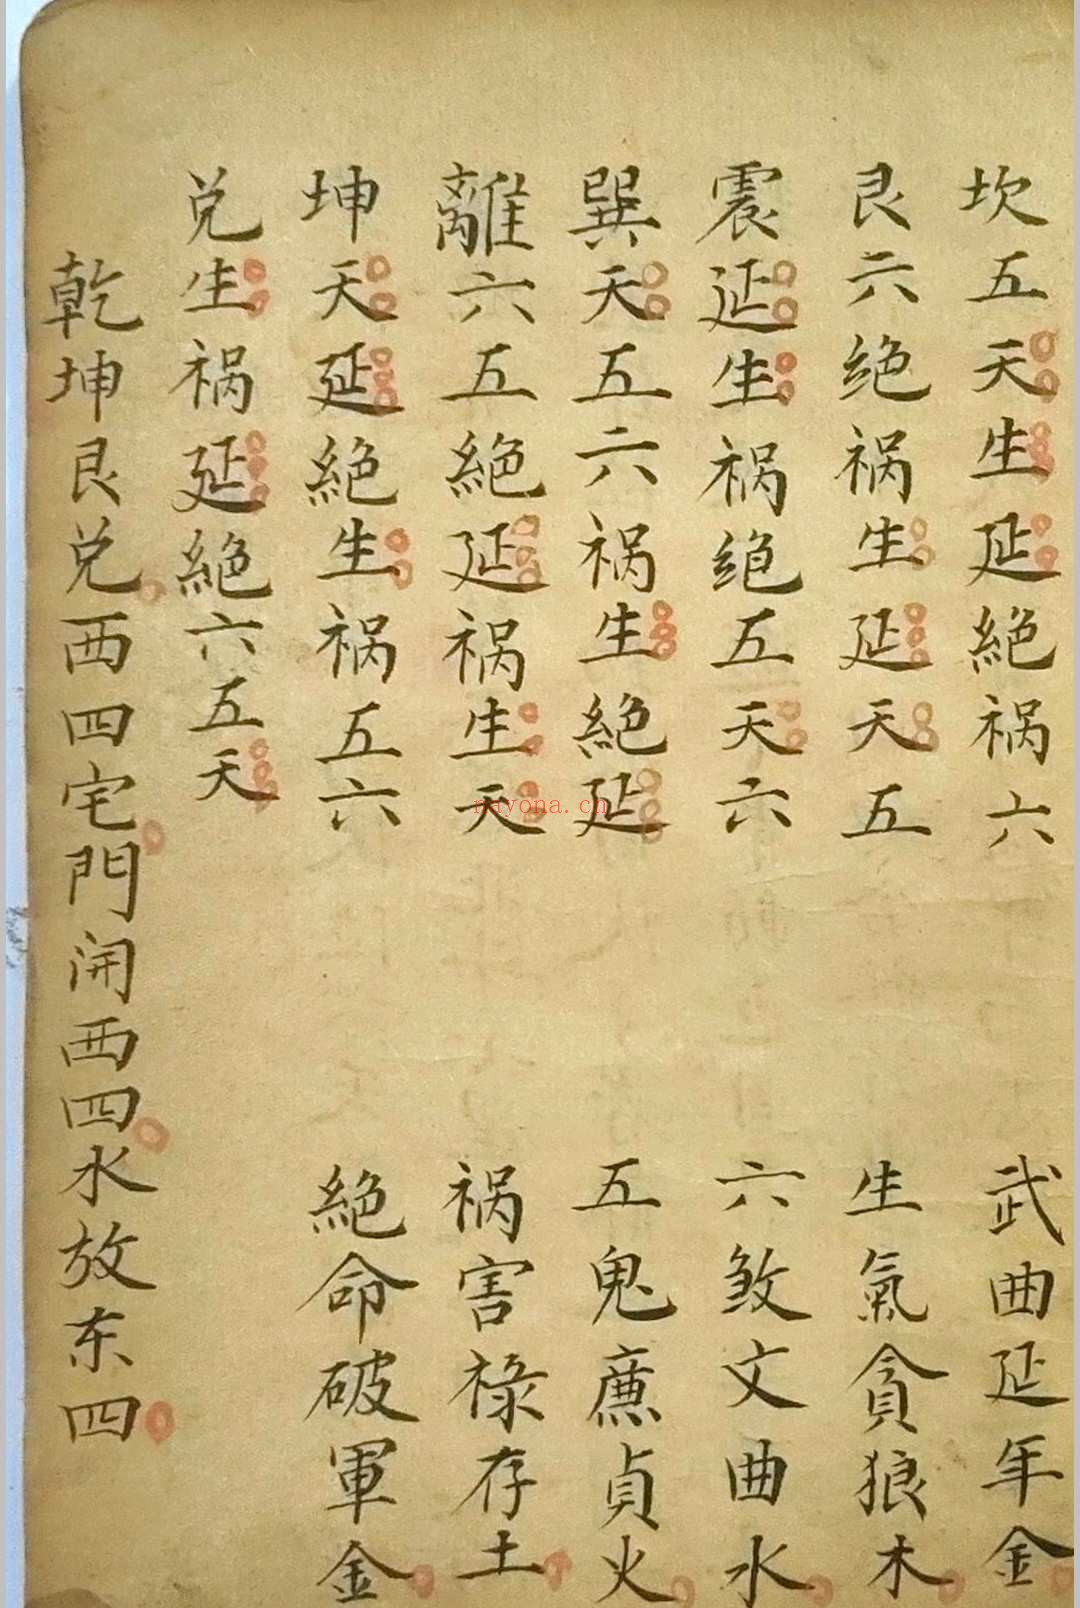 坎五天生延絕祸六
艮六绝祸生延天五
震延生祸绝五天六
巽天五六祸生絕延
離六五絕延祸生天
坤天延絕生祸五六
兑生祸延絕六五天
武曲延年金
生氣貪狼木
六煞文曲水
五鬼廉貞火
祸害禄存土
絕命破軍金
乾坤艮兑西四宅門開西四水放东四
nayona.cn